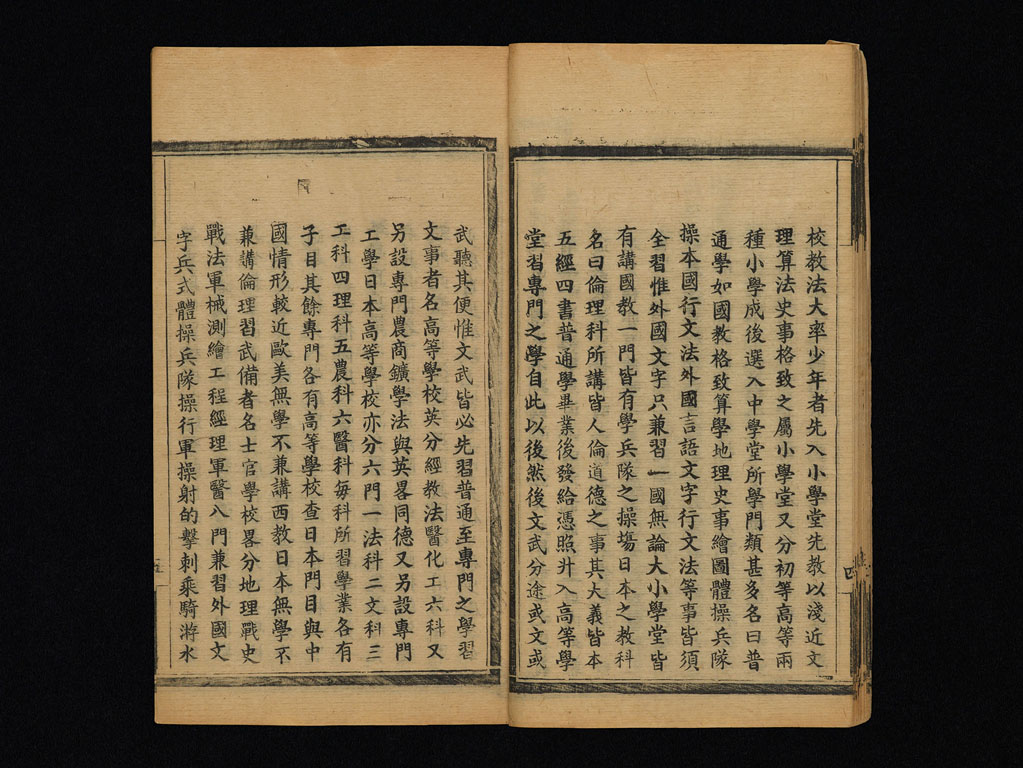 校教法大率少年者先入小學堂先教以淺近文
理算法史事格致之屬小學堂又分初等高等兩
種小學成後選入中學堂所學門類甚多名曰普
通學如國教格致算學地理史事繪圖體操兵隊
操本國行文法外國言語文字行文法等事皆須
全習惟外國文字只兼習一國無論大小學堂皆
有講國教一門皆有學兵隊之操塲日本之教科
名曰倫理科所講皆人倫道德之事其大義皆本
五經四書普通學畢業後發給憑照升入高等學
堂習專門之學自此以後然後文武分途或文或
四
武聽其便惟文武皆必先習普通至專門之學習
文事者名高等學校英分經教法醫化工六科又
另設專門農商鑛學法與英畧同德又另設專門
工學日本高等學校亦分六門一法科二文科三
工科四理科五農科六醫科每科所習學業各有
子目其餘專門各有高等學校查日本門目與中
國情形較近歐美無學不兼講西教日本無學不
兼講倫理習武備者名士官學校畧分地理戰史
戰法軍械測繪工程經理軍醫八門兼習外國文
字兵式體操兵隊操行軍操射的擊刺乘騎游水
五